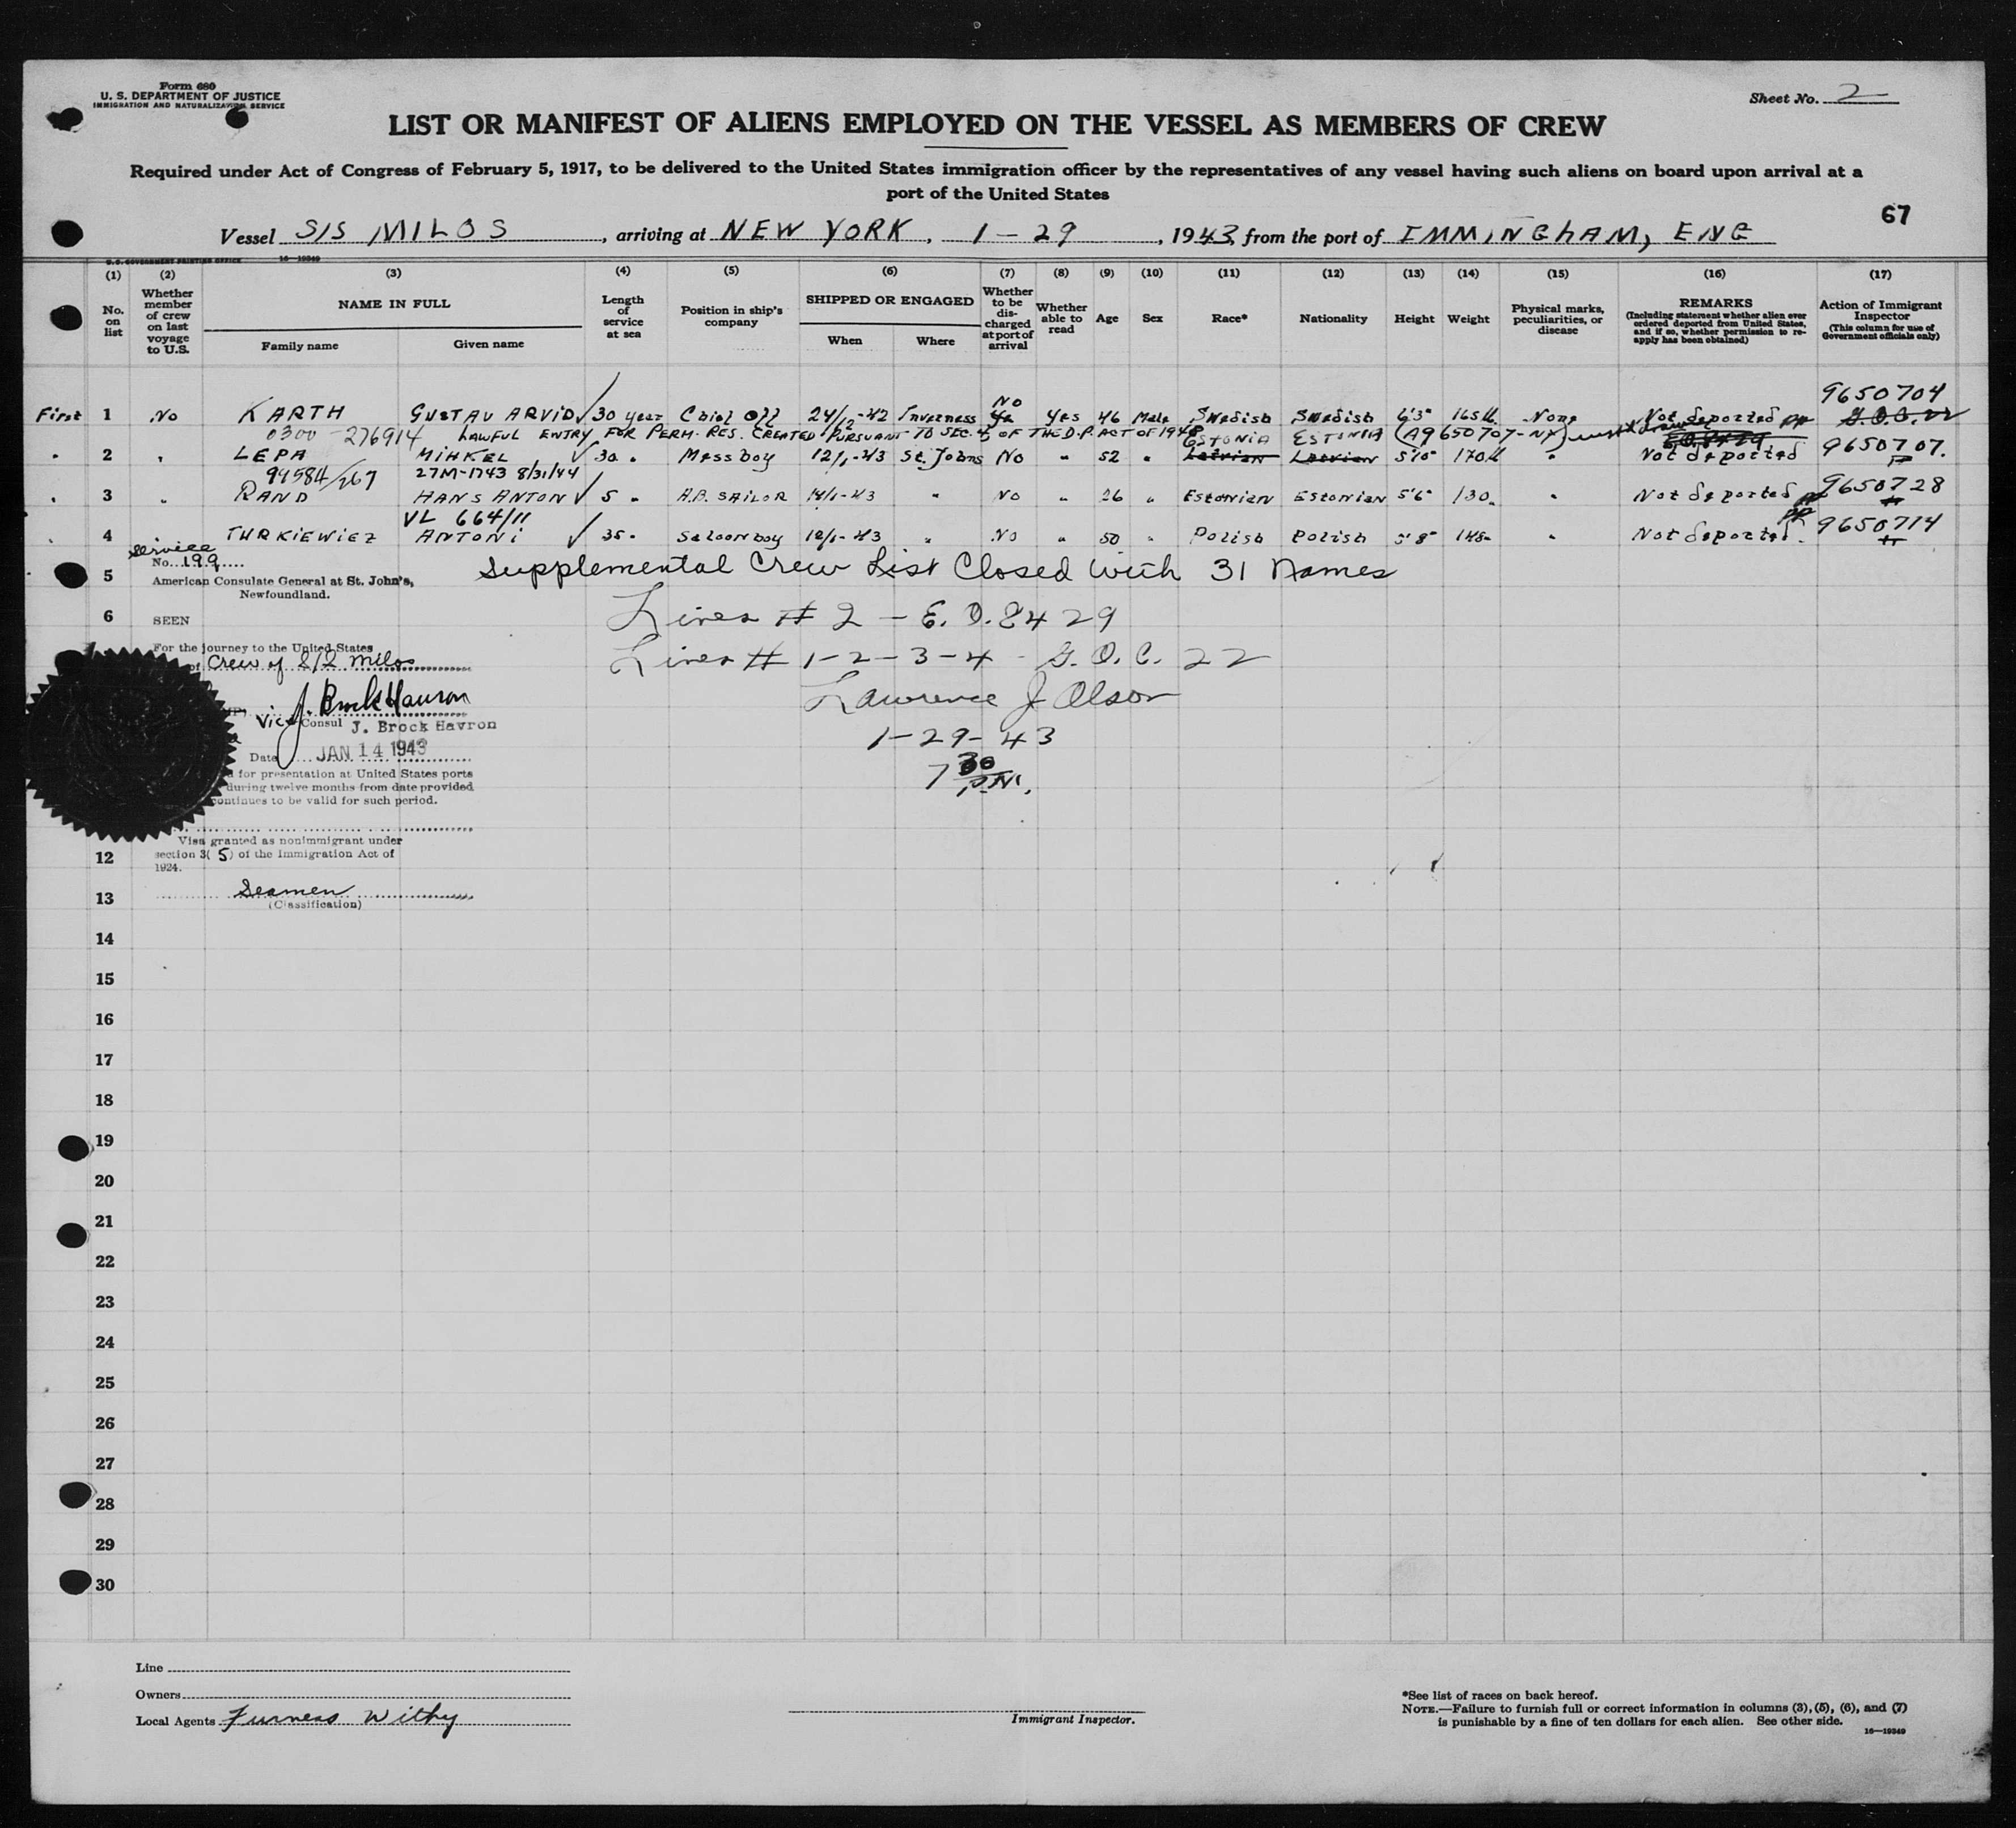 Form 680
U. S. DEPARTMENT OF JUSTICE
IMMIGRATION AND NATURALIZATION SERVICE
Sheet No. 2
LIST OR MANIFEST OF ALIENS EMPLOYED ON THE VESSEL AS MEMBERS OF CREW
Required under Act of Congress of February 5, 1917, to be delivered to the United States immigration officer by the representatives of any vessel having such aliens on board upon arrival at a
port of the United States
67
Vessel S/S MILOS, arriving at NEW YORK, 1-29, 1943, from the port of IMMINGHAM, ENG
U.S. GOVERNMENT PRINTING OFFICE 16—19349
(1) (2) (3) (4) (5) (6) (7) (8) (9) (10) (11) (12) (13) (14) (15) (16) (17)
No. on list
Whether member of crew on last voyage to U.S.
NAME IN FULL
Family name
Given name
Length of service at sea
Position in ship's company
SHIPPED OR ENGAGED
When
Where
Whether to be discharged at port of arrival
Whether able to read
Age
Sex
Race*
Nationality
Height
Weight
Physical marks, peculiarities, or disease
REMARKS
(Including statement whether alien ever ordered deported from United States, and if so, whether permission to reapply has been obtained)
Action of Immigrant Inspector
(This column for use of Government officials only)
No 9650704
First 1 No KARTH GUSTAV ARVID ✓ 30 year Chief Off 24/12-42 Inverness Yes 46 Male Swedish Swedish 6'3" 165 lb None Not deported
0300-276914 LAWFUL ENTRY FOR PERM. RES. CREATED PURSUANT TO SEC. 5 OF THE D.P. ACT OF 1948 (A9650707-NY)
ESTONIA ESTONIA E.O. 8429
" 2 " LEPA MIHKEL ✓ 30 " Mess boy 12/1-43 St. Johns No " 52 " Latvian Latvian 5'10" 170 lb " Not deported 9650707.
99584/267 27M-1743 8/31/44
" 3 " RAND HANS ANTON ✓ 5 " A.B. SAILOR 14/1-43 " No " 26 " Estonian Estonian 5'6" 130 " Not deported 9650728
VL 664/11
" 4 TURKIEWIEZ ANTONI ✓ 35 " Saloon boy 12/1-43 " No " 50 " Polish Polish 5'8" 145 " Not deported. 9650714
service
No. 199
5 American Consulate General at St. John's,
Newfoundland.
Supplemental Crew List Closed with 31 Names
6 SEEN
Lines # 2 - E.O. 8429
For the journey to the United States
of Crew of S/S Milos
Lines # 1-2-3-4 - G.O.C. 22
Lawrence J Olson
J. Brock Havron
Vice Consul J. Brock Havron
1-29-43
Date JAN 14 1943
7 30 P.M.
for presentation at United States ports
during twelve months from date provided
continues to be valid for such period.
Visa granted as nonimmigrant under
12 section 3(5) of the Immigration Act of
1924.
13 Seamen
(Classification)
14
15
16
17
18
19
20
21
22
23
24
25
26
27
28
29
30
Line
Owners
Local Agents Furness Withy
Immigrant Inspector.
*See list of races on back hereof.
NOTE.—Failure to furnish full or correct information in columns (3), (5), (6), and (7)
is punishable by a fine of ten dollars for each alien. See other side.
16—19349